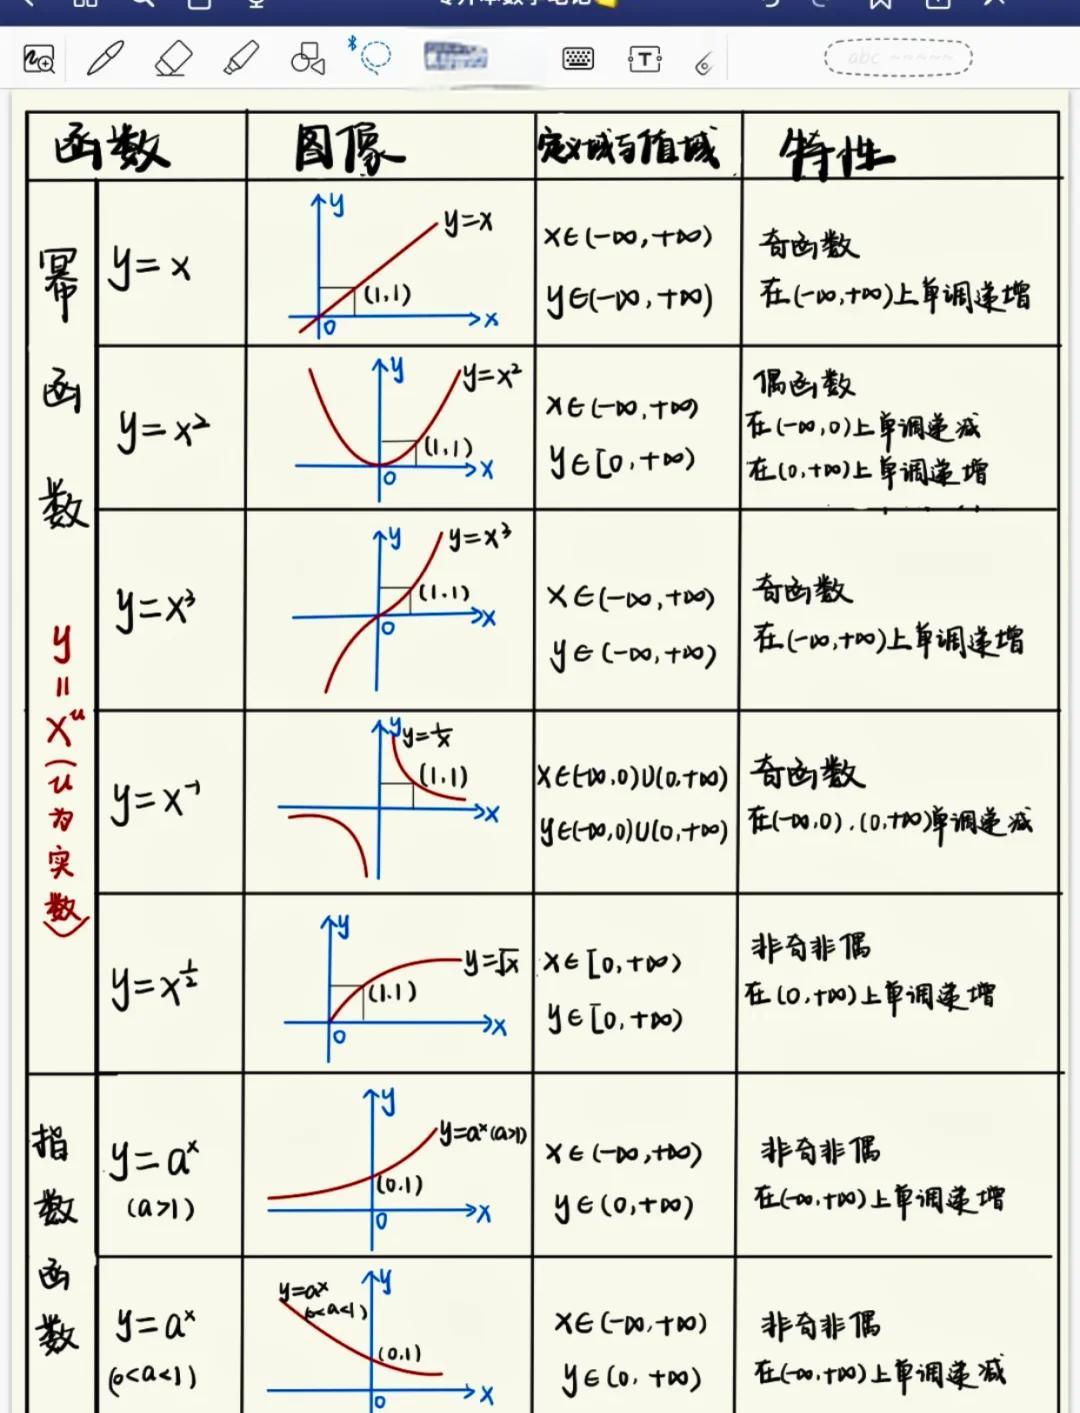 专升本数学笔记
T
abc ~~~~~
函数 图像 定义域与值域 特性
幂函数
y=xᵘ(u为实数)
y=x
y
y=x
(1,1)
0
x
x∈(-∞,+∞)
y∈(-∞,+∞)
奇函数
在(-∞,+∞)上单调递增
y=x²
y
y=x²
(1,1)
0
x
x∈(-∞,+∞)
y∈[0,+∞)
偶函数
在(-∞,0)上单调递减
在(0,+∞)上单调递增
y=x³
y
y=x³
(1.1)
0
x
x∈(-∞,+∞)
y∈(-∞,+∞)
奇函数
在(-∞,+∞)上单调递增
y=x⁻¹
y
y=1/x
(1,1)
x
x∈(-∞,0)∪(0,+∞)
y∈(-∞,0)∪(0,+∞)
奇函数
在(-∞,0).(0,+∞)单调递减
y=x^½
y
y=√x
(1.1)
0
x
x∈[0,+∞)
y∈[0,+∞)
非奇非偶
在(0,+∞)上单调递增
指数函数
y=aˣ
(a>1)
y
y=aˣ(a>1)
(0.1)
0
x
x∈(-∞,+∞)
y∈(0,+∞)
非奇非偶
在(-∞,+∞)上单调递增
y=aˣ
(0<a<1)
y
y=aˣ
(0<a<1)
(0,1)
0
x
x∈(-∞,+∞)
y∈(0,+∞)
非奇非偶
在(-∞,+∞)上单调递减